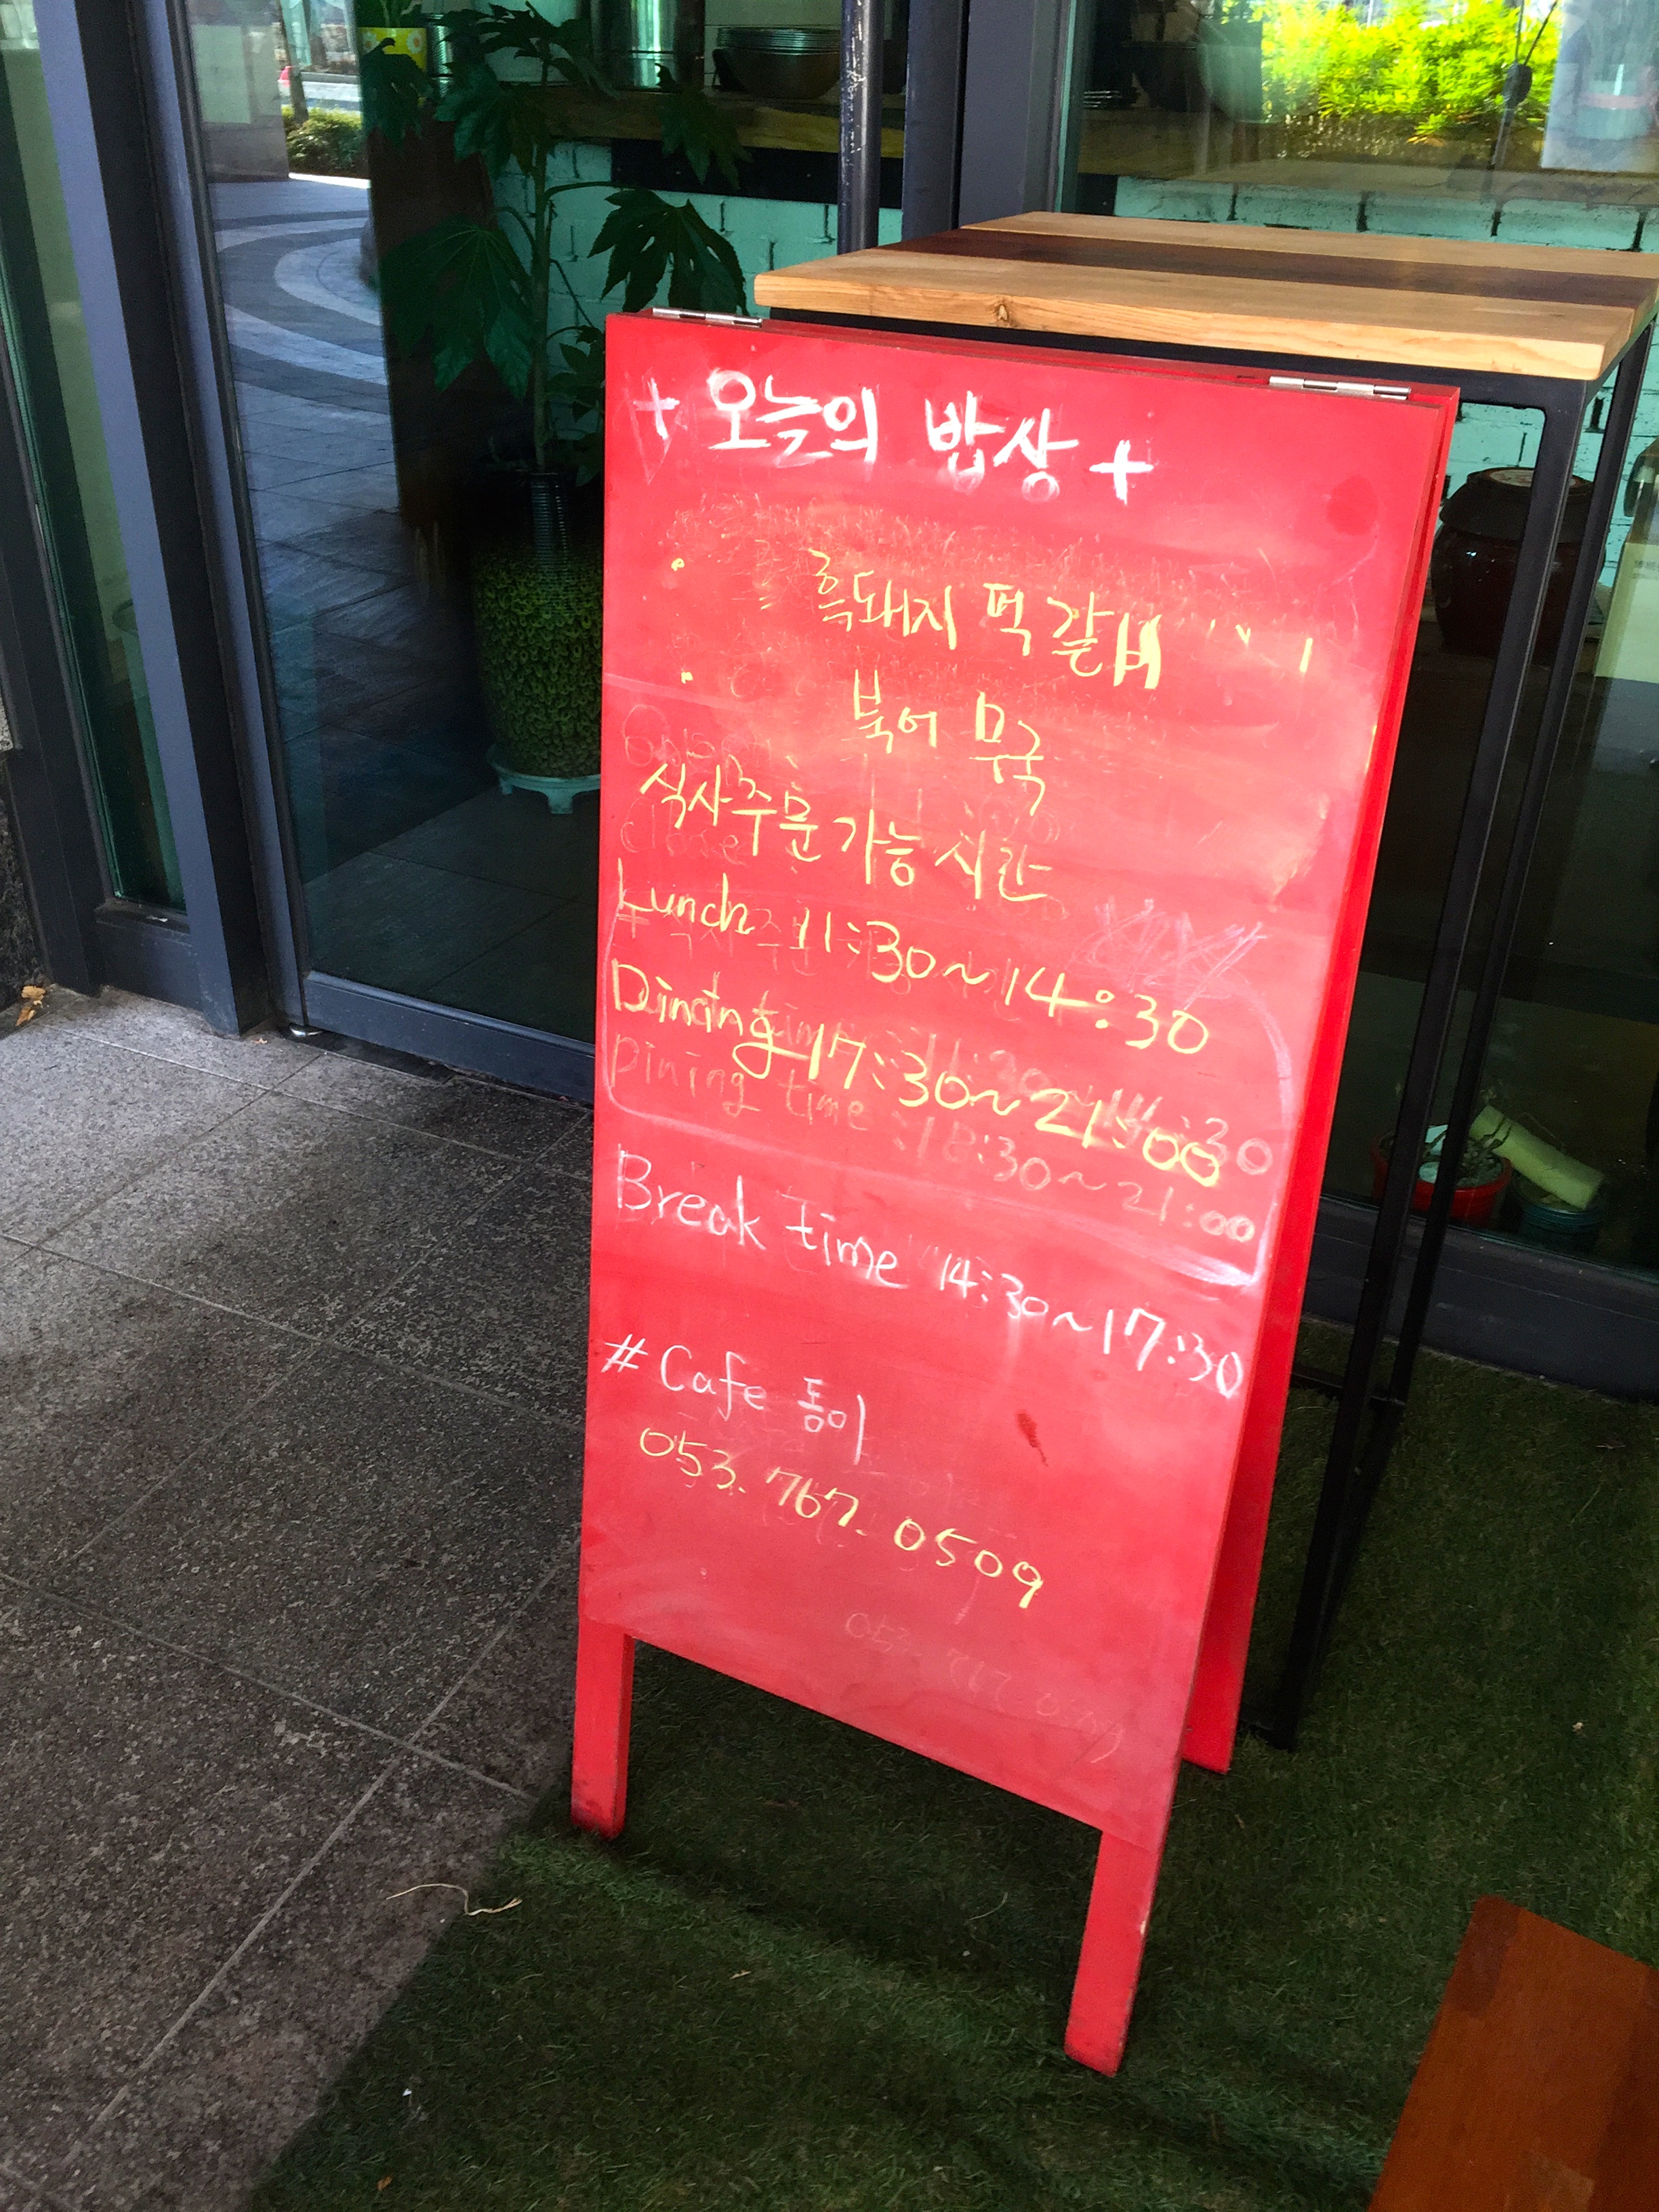 + 오늘의 밥상 +
흑돼지 떡갈비
북어 무국
식사주문 가능 시간
Lunch 11:30~14:30
Dining 17:30~21:00
Dining time :18:30~21:00
Break time 14:30~17:30
# Cafe 동이
053. 767. 0509